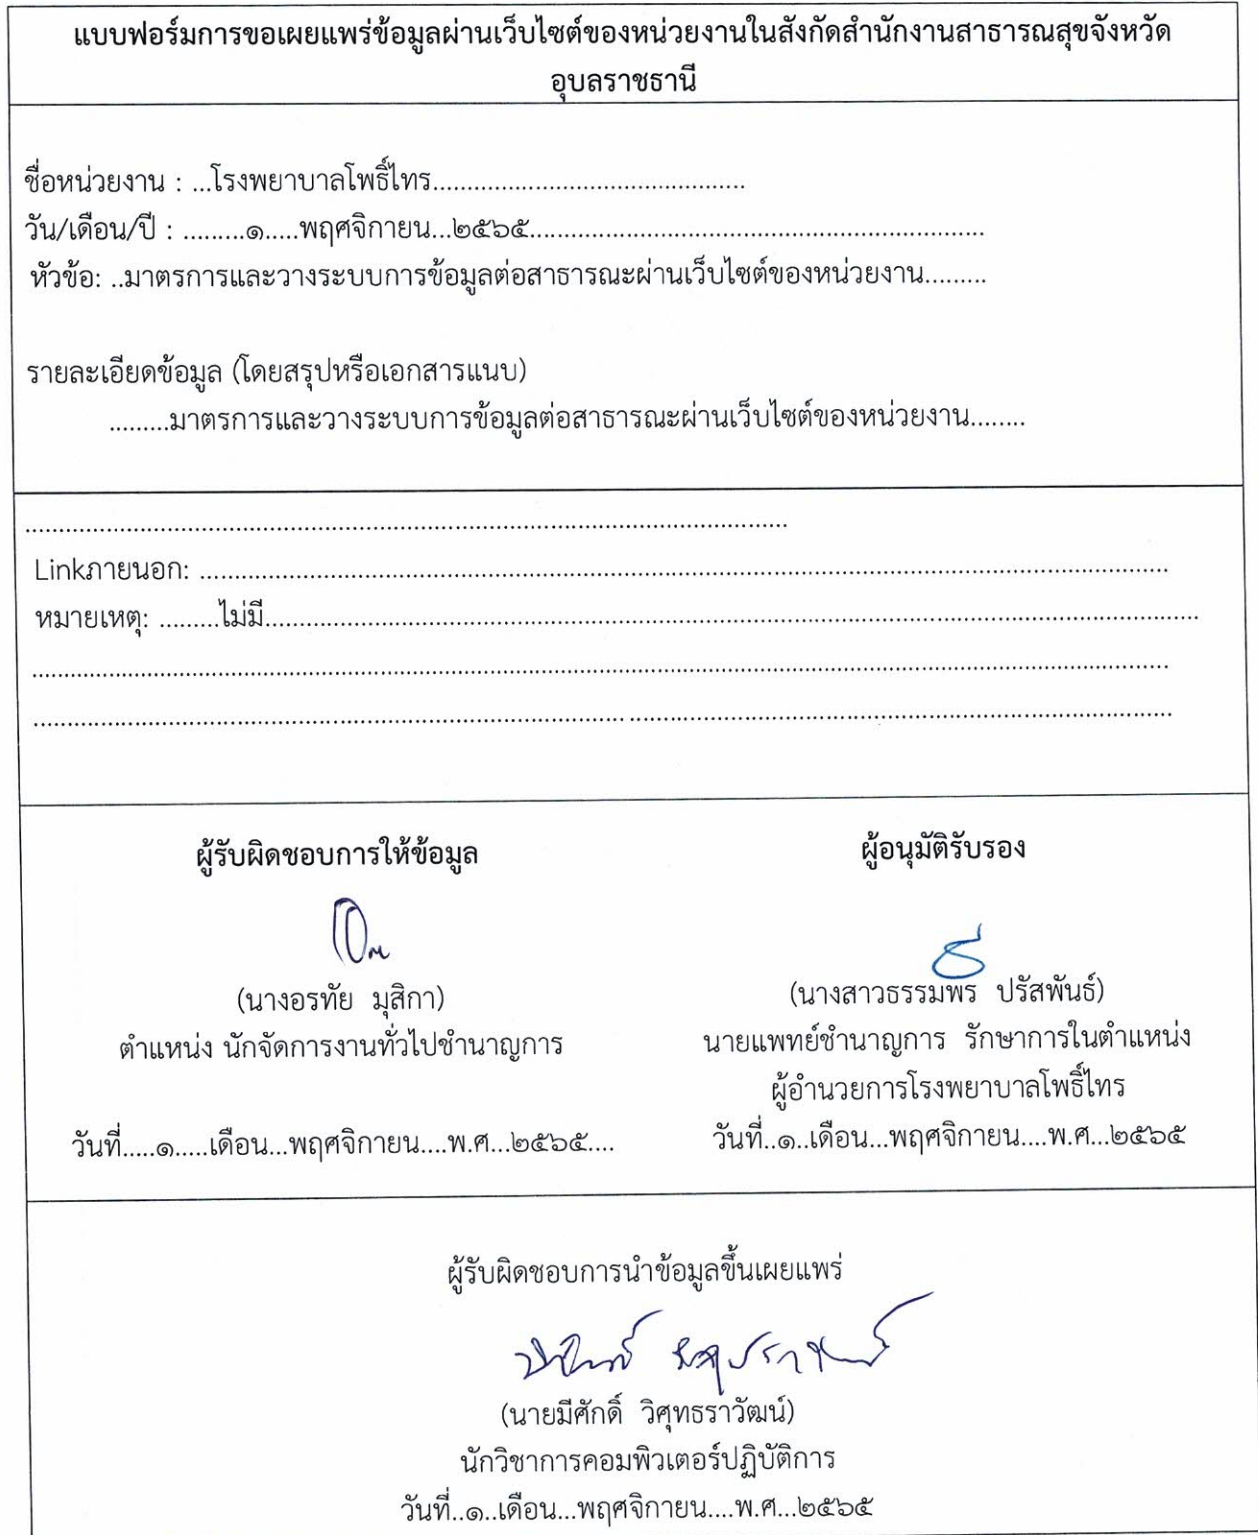 แบบฟอร์มการขอเผยแพร่ข้อมูลผ่านเว็บไซต์ของหน่วยงานในสังกัดสำนักงานสาธารณสุขจังหวัด
อุบลราชธานี
ชื่อหน่วยงาน : ...โรงพยาบาลโพธิ์ไทร..............................................
วัน/เดือน/ปี : .........๑.....พฤศจิกายน...๒๕๖๕....................................................................
หัวข้อ: ..มาตรการและวางระบบการข้อมูลต่อสาธารณะผ่านเว็บไซต์ของหน่วยงาน.........
รายละเอียดข้อมูล (โดยสรุปหรือเอกสารแนบ)
.........มาตรการและวางระบบการข้อมูลต่อสาธารณะผ่านเว็บไซต์ของหน่วยงาน........
..................................................................................................................
Linkภายนอก: ................................................................................................................................................
หมายเหตุ: .........ไม่มี...........................................................................................................................................
.........................................................................................................................................................................
.........................................................................................................................................................................
ผู้รับผิดชอบการให้ข้อมูล
(นางอรทัย มุสิกา)
ตำแหน่ง นักจัดการงานทั่วไปชำนาญการ
วันที่.....๑.....เดือน...พฤศจิกายน....พ.ศ...๒๕๖๕....
ผู้อนุมัติรับรอง
(นางสาวธรรมพร ปรัสพันธ์)
นายแพทย์ชำนาญการ รักษาการในตำแหน่ง
ผู้อำนวยการโรงพยาบาลโพธิ์ไทร
วันที่..๑..เดือน...พฤศจิกายน....พ.ศ...๒๕๖๕
ผู้รับผิดชอบการนำข้อมูลขึ้นเผยแพร่
(นายมีศักดิ์ วิศุทธราวัฒน์)
นักวิชาการคอมพิวเตอร์ปฏิบัติการ
วันที่..๑..เดือน...พฤศจิกายน....พ.ศ...๒๕๖๕